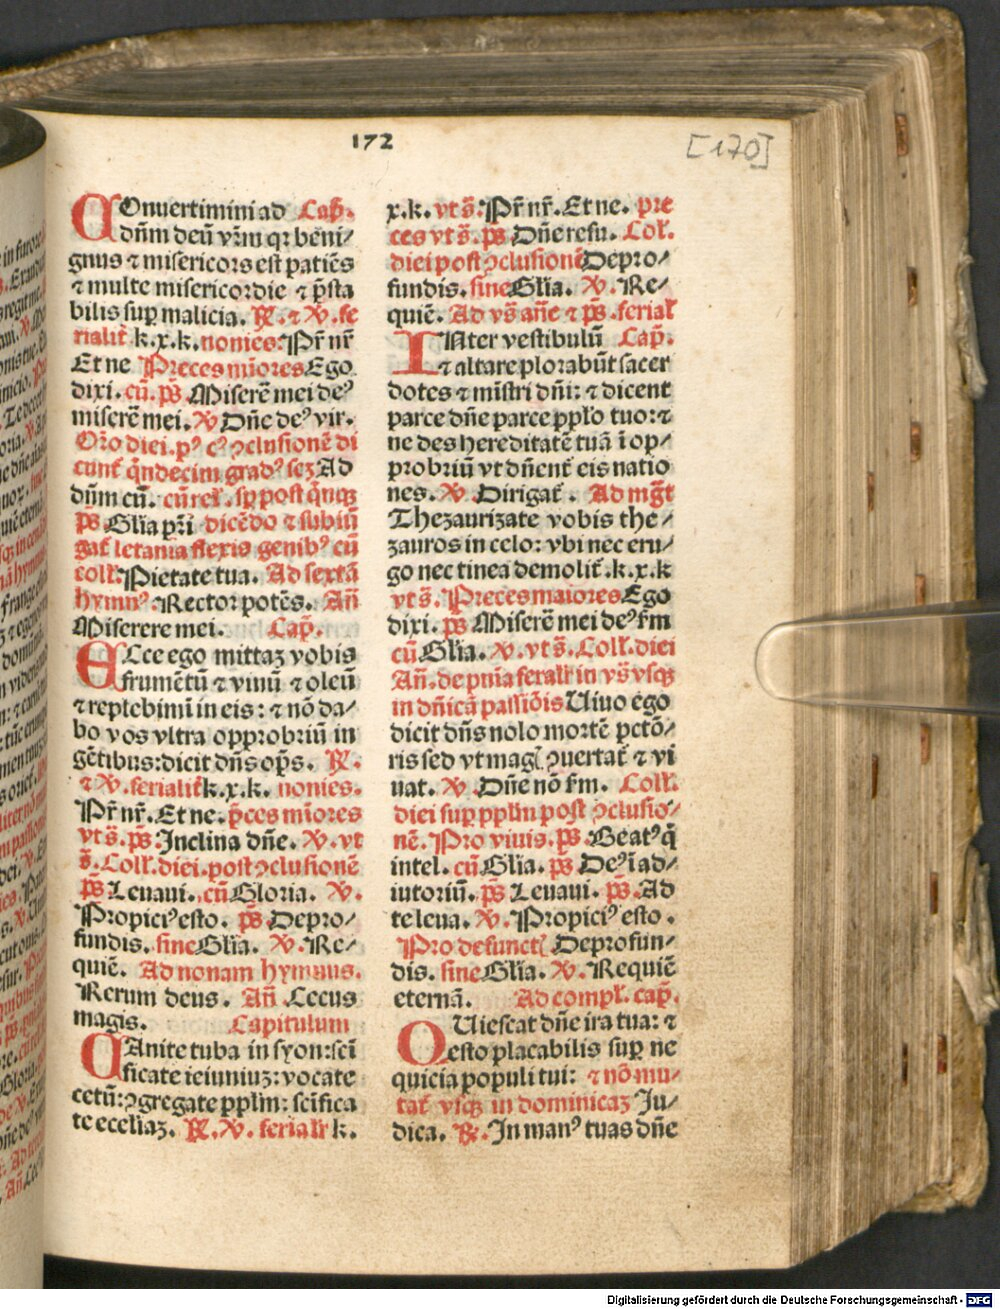 172
[170]
COnuertimini ad Cap̄.
dn̄m deū vr̄m qꝛ beni⸗
gnus ⁊ misericors est patiēs
⁊ multe misericordie ⁊ p̄sta
bilis suꝑ malicia. ℟. ⁊ ℣. fe
rialit̄ k.x.k. nonies. Pr̄ nr̄
Et ne Preces mīores Ego
dixi. cū. ps̄ Miserē mei deꝰ
miserē mei. ℣ Dn̄e deꝰ vir.
Or̄o diei. pꝰ cꝰ ꝯclusionē di
cunt̄ qͥndecim gradꝰ sez Ad
dn̄m cū. cū rel̄. sꝑ post qͥnqꝫ
ps̄ Gl̄ia pr̄i dicēdo ⁊ subiū
gat̄ letania flexis genibꝰ cū
coll̄. Pietate tua. Ad sextā
hymnꝰ. Rector potēs. Añ
Miserere mei. Cap̄.
ECce ego mittaꝫ vobis
frumētū ⁊ vinū ⁊ oleū
⁊ replebimī in eis: ⁊ nō da⸗
bo vos vltra opprobriū in
gētibus: dicit dn̄s op̄s. ℟.
⁊ ℣. ferialit̄ k.x.k. nonies.
Pr̄ nr̄. Et ne. p̄ces mīores
vt s̄. ps̄ Inclina dn̄e. ℣. vt
s̄. Coll̄. diei. post ꝯclusionē
ps̄ Leuaui. cū Gloria. ℣.
Propiciꝰ esto. ps̄ Depro⸗
fundis. sine Gl̄ia. ℣. Re⸗
quiē. Ad nonam hymnus.
Rerum deus. Añ Cecus
magis. Capitulum
CAnite tuba in syon: sci
ficate ieiuniuꝫ: vocate
cetū: ꝯgregate ppl̄m: scīfica
te eccl̄iaꝫ. ℟. ℣. ferialr̄ k.
x.k. vt s̄. Pr̄ nr̄. Et ne. pre
ces vt s̄. ps̄ Dn̄e refu. Col̄.
diei post ꝯclusionē Depro⸗
fundis. sine Gl̄ia. ℣. Re⸗
quiē. Ad vs̄ añe ⁊ ps̄. ferial̄
INter vestibulū Cap̄.
⁊ altare plorabūt sacer
dotes ⁊ mīstri dn̄i: ⁊ dicent
parce dn̄e parce pplo tuo: ⁊
ne des hereditatē tuā ī op⸗
probriū vt dn̄ent̄ eis natio
nes. ℣. Dirigat̄. Ad mḡt
Thezaurizate vobis the⸗
zauros in celo: vbi nec eru⸗
go nec tinea demolit̄. k.x.k
vt s̄. Preces maiores Ego
dixi. ps̄ Miserē mei deꝰ s̄m
cū Gl̄ia. ℣. vt s̄. Coll̄. diei
Añ. de pn̄ia feralr̄ in vs̄ vsqꝫ
in dn̄icā passiōis Uiuo ego
dicit dn̄s nolo mortē pctō⸗
ris sed vt mag̨ ꝯuertat̄ ⁊ vi
uat. ℣. Dn̄e nō s̄m. Coll̄.
diei suꝑ pplm̄ post ꝯclusio⸗
nē. Pro viuis. ps̄. Beatꝰ q̄
intel. cū Gl̄ia. ps̄ Deꝰ ī ad⸗
iutoriū. ps̄ Leuaui. ps̄. Ad
te leua. ℣. Propiciꝰ esto.
Pro defunct̨ Deprofun⸗
dis. sine Gl̄ia. ℣. Requiē
eternā. Ad compl̄. cap̄.
QUiescat dn̄e ira tua: ⁊
esto placabilis suꝑ ne
quicia populi tui: ⁊ nō mu⸗
tat̄ vsqꝫ in dominicaꝫ Ju⸗
dica. ℟. In manꝰ tuas dn̄e
Digitalisierung gefördert durch die Deutsche Forschungsgemeinschaft - DFG